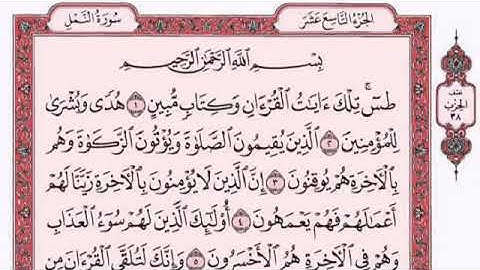 الجزء التاسع عشر
سورة النمل
بِسْمِ ٱللَّهِ ٱلرَّحْمَٰنِ ٱلرَّحِيمِ
طسٓ ۚ تِلْكَ ءَايَٰتُ ٱلْقُرْءَانِ وَكِتَابٍ مُّبِينٍ ١ هُدًى وَبُشْرَىٰ
لِلْمُؤْمِنِينَ ٢ ٱلَّذِينَ يُقِيمُونَ ٱلصَّلَوٰةَ وَيُؤْتُونَ ٱلزَّكَوٰةَ وَهُم
بِٱلْأَخِرَةِ هُمْ يُوقِنُونَ ٣ إِنَّ ٱلَّذِينَ لَا يُؤْمِنُونَ بِٱلْأَخِرَةِ زَيَّنَّا لَهُمْ
أَعْمَٰلَهُمْ فَهُمْ يَعْمَهُونَ ٤ أُو۟لَٰٓئِكَ ٱلَّذِينَ لَهُمْ سُوٓءُ ٱلْعَذَابِ
وَهُمْ فِى ٱلْأَخِرَةِ هُمُ ٱلْأَخْسَرُونَ ٥ وَإِنَّكَ لَتُلَقَّى ٱلْقُرْءَانَ مِن
الحزب
٣٨